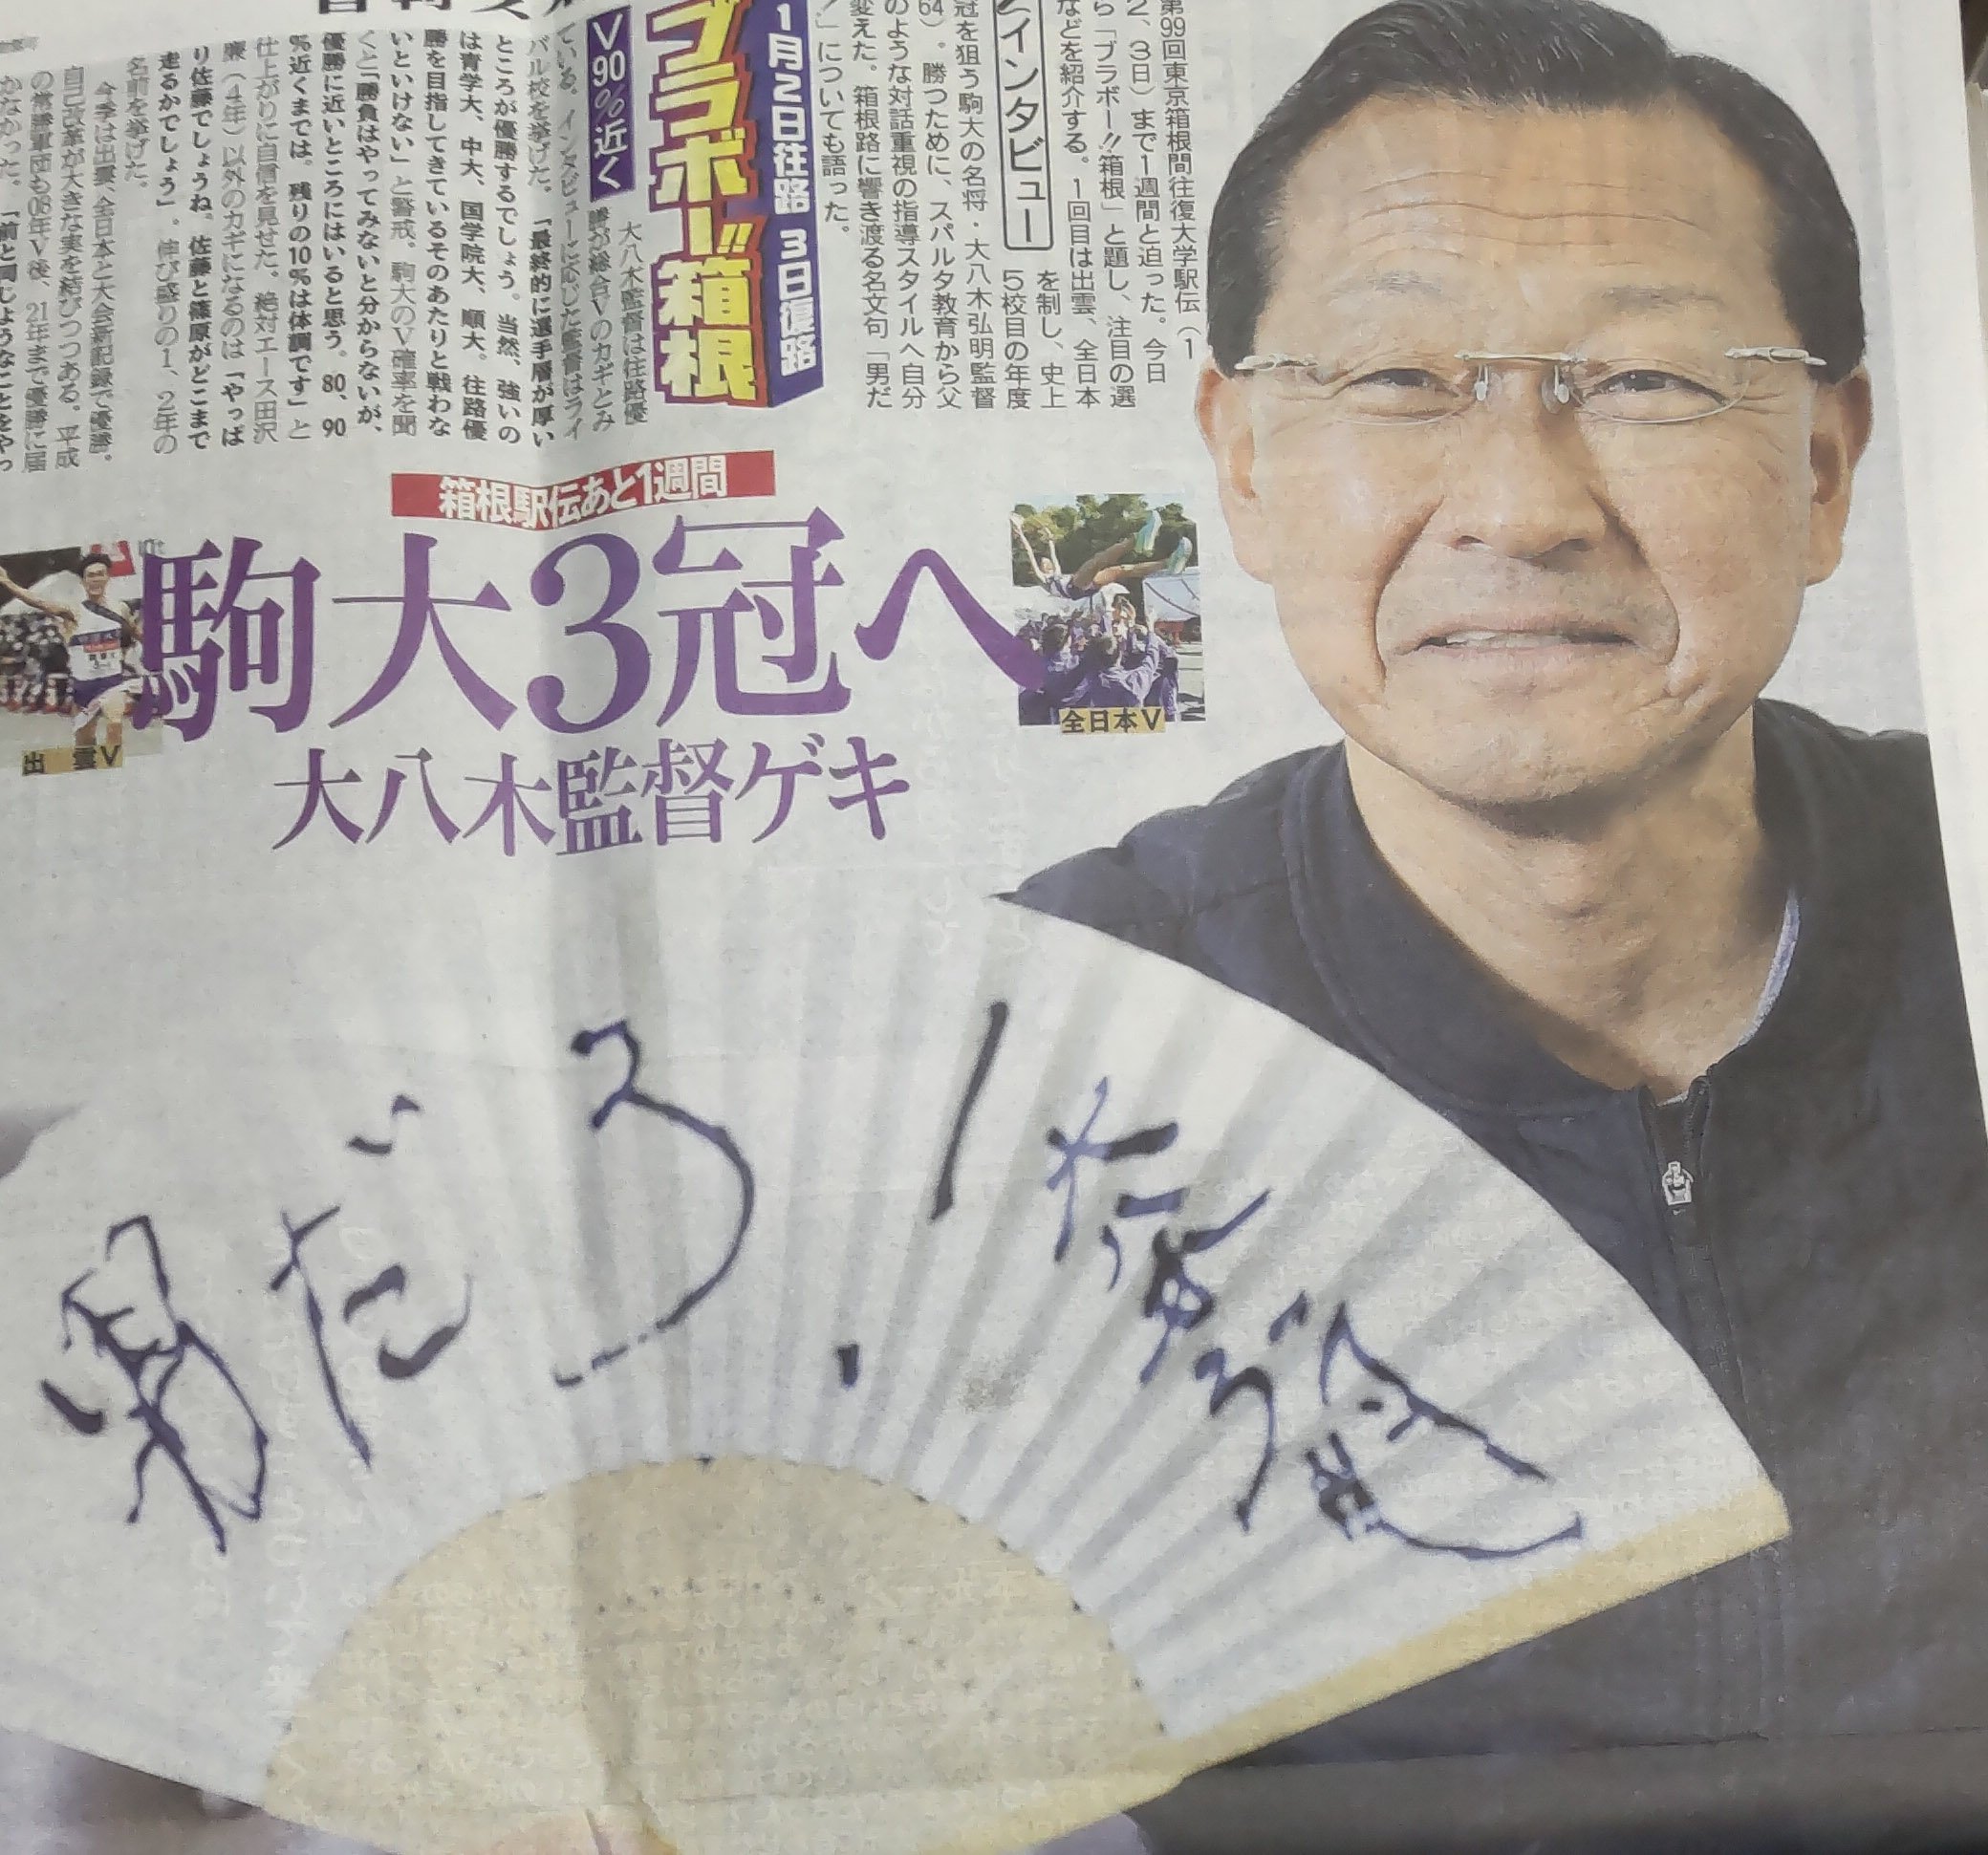 第99回東京箱根間往復大学駅伝（1
2、3日）まで1週間と迫った。今日
ら「ブラボー!!箱根」と題し、注目の選
などを紹介する。1回目は出雲、全日本
を制し、史上
5校目の年度
インタビュー
冠を狙う駒大の名将・大八木弘明監督
64）。勝つために、スパルタ教育から父
のような対話重視の指導スタイルへ自分
変えた。箱根路に響き渡る名文句「男だ
！」についても語った。
1月2日往路 3日復路
ブラボー!!箱根
V90%近く
大八木監督は往路優
勝が総合Vのカギとみ
ている。インタビューに応じた監督はライ
バル校を挙げた。「最終的に選手層が厚い
ところが優勝するでしょう。当然、強いの
は青学大、中大、国学院大、順大。往路優
勝を目指してきているそのあたりと戦わな
いといけない」と警戒。駒大のV確率を聞
くと「勝負はやってみないと分からないが、
優勝に近いところにはいると思う。80、90
%近くまでは。残りの10%は体調です」と
仕上がりに自信を見せた。絶対エース田沢
廉（4年）以外のカギになるのは「やっぱ
り佐藤でしょうね。佐藤と篠原がどこまで
走るかでしょう」。伸び盛りの1、2年の
名前を挙げた。
今季は出雲、全日本と大会新記録で優勝。
自己改革が大きな実を結びつつある。平成
の常勝軍団も08年V後、21年まで優勝に届
かなかった。「前と同じようなことをやっ
箱根駅伝あと1週間
駒大3冠へ
大八木監督ゲキ
出雲V
全日本V
男だろ！